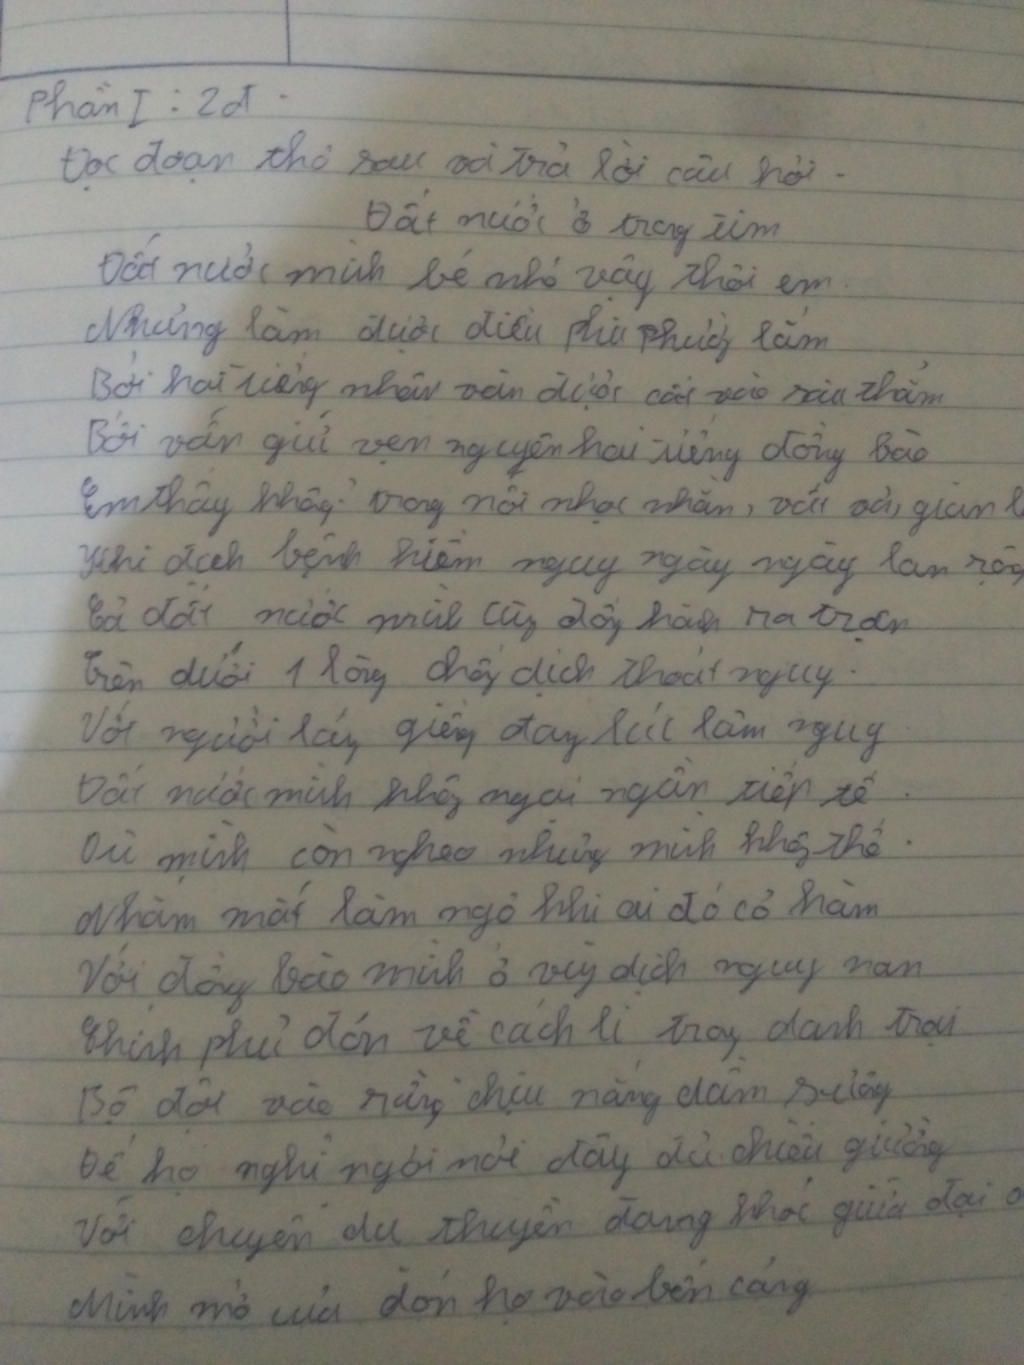 Phần I : 2đ.
Đọc đoạn thơ sau và trả lời câu hỏi.
Đất nước ở trong tim
Đất nước mình bé nhỏ vậy thôi em.
Nhưng làm được điều phi thường lắm
Bởi hai tiếng nhân văn được cất vào sâu thẳm
Bởi vẫn giữ vẹn nguyên hai tiếng đồng bào
Em thấy không? trong nỗi nhọc nhằn, vất vả, gian
Khi dịch bệnh hiểm nguy ngày ngày lan rộng
Cả đất nước mình cùng đồng hành ra trận
Trên dưới 1 lòng chống dịch thoát nguy.
Với người láng giềng đang lúc lâm nguy
Đất nước mình không ngại ngần tiếp tế.
Dù mình còn nghèo nhưng mình không thể.
Nhắm mắt làm ngơ khi ai đó cơ hàn
Với đồng bào mình ở vùng dịch nguy nan
Chính phủ đón về cách li trong doanh trại
Bộ đội vào rừng chịu nắng dầm sương
Để họ nghỉ ngơi nơi đầy đủ chiếu giường
Với chuyến du thuyền đang khóc giữa đại
Mình mở cửa đón họ vào bến cảng